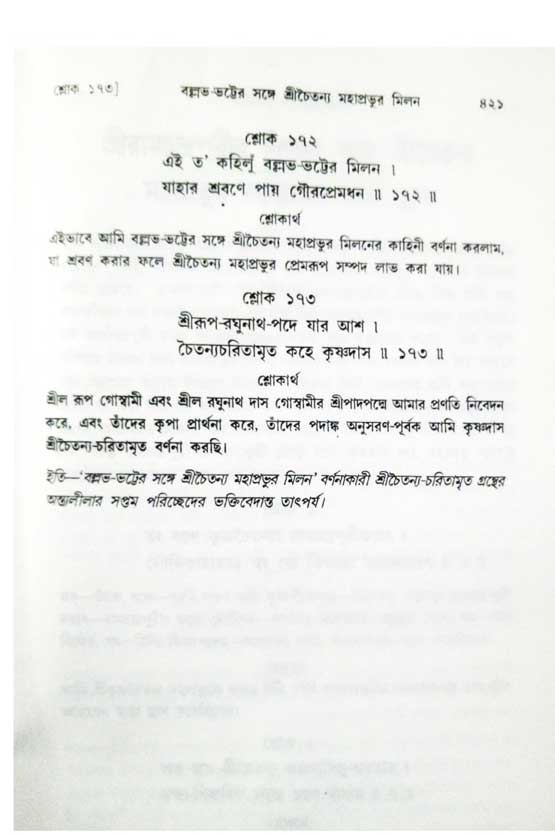 [শ্লোক ১৭৩]
বল্লভ-ভট্টের সঙ্গে শ্রীচৈতন্য মহাপ্রভুর মিলন
৪২১
শ্লোক ১৭২
এই ত' কহিলুঁ বল্লভ-ভট্টের মিলন ।
যাহার শ্রবণে পায় গৌরপ্রেমধন ॥ ১৭২ ॥
শ্লোকার্থ
এইভাবে আমি বল্লভ-ভট্টের সঙ্গে শ্রীচৈতন্য মহাপ্রভুর মিলনের কাহিনী বর্ণনা করলাম,
যা শ্রবণ করার ফলে শ্রীচৈতন্য মহাপ্রভুর প্রেমরূপ সম্পদ লাভ করা যায়।
শ্লোক ১৭৩
শ্রীরূপ-রঘুনাথ-পদে যার আশ ।
চৈতন্যচরিতামৃত কহে কৃষ্ণদাস ॥ ১৭৩ ॥
শ্লোকার্থ
শ্রীল রূপ গোস্বামী এবং শ্রীল রঘুনাথ দাস গোস্বামীর শ্রীপাদপদ্মে আমার প্রণতি নিবেদন
করে, এবং তাঁদের কৃপা প্রার্থনা করে, তাঁদের পদাঙ্ক অনুসরণ-পূর্বক আমি কৃষ্ণদাস
শ্রীচৈতন্য-চরিতামৃত বর্ণনা করছি।
ইতি—'বল্লভ-ভট্টের সঙ্গে শ্রীচৈতন্য মহাপ্রভুর মিলন' বর্ণনাকারী শ্রীচৈতন্য-চরিতামৃত গ্রন্থের
অন্ত্যলীলার সপ্তম পরিচ্ছেদের ভক্তিবেদান্ত তাৎপর্য।